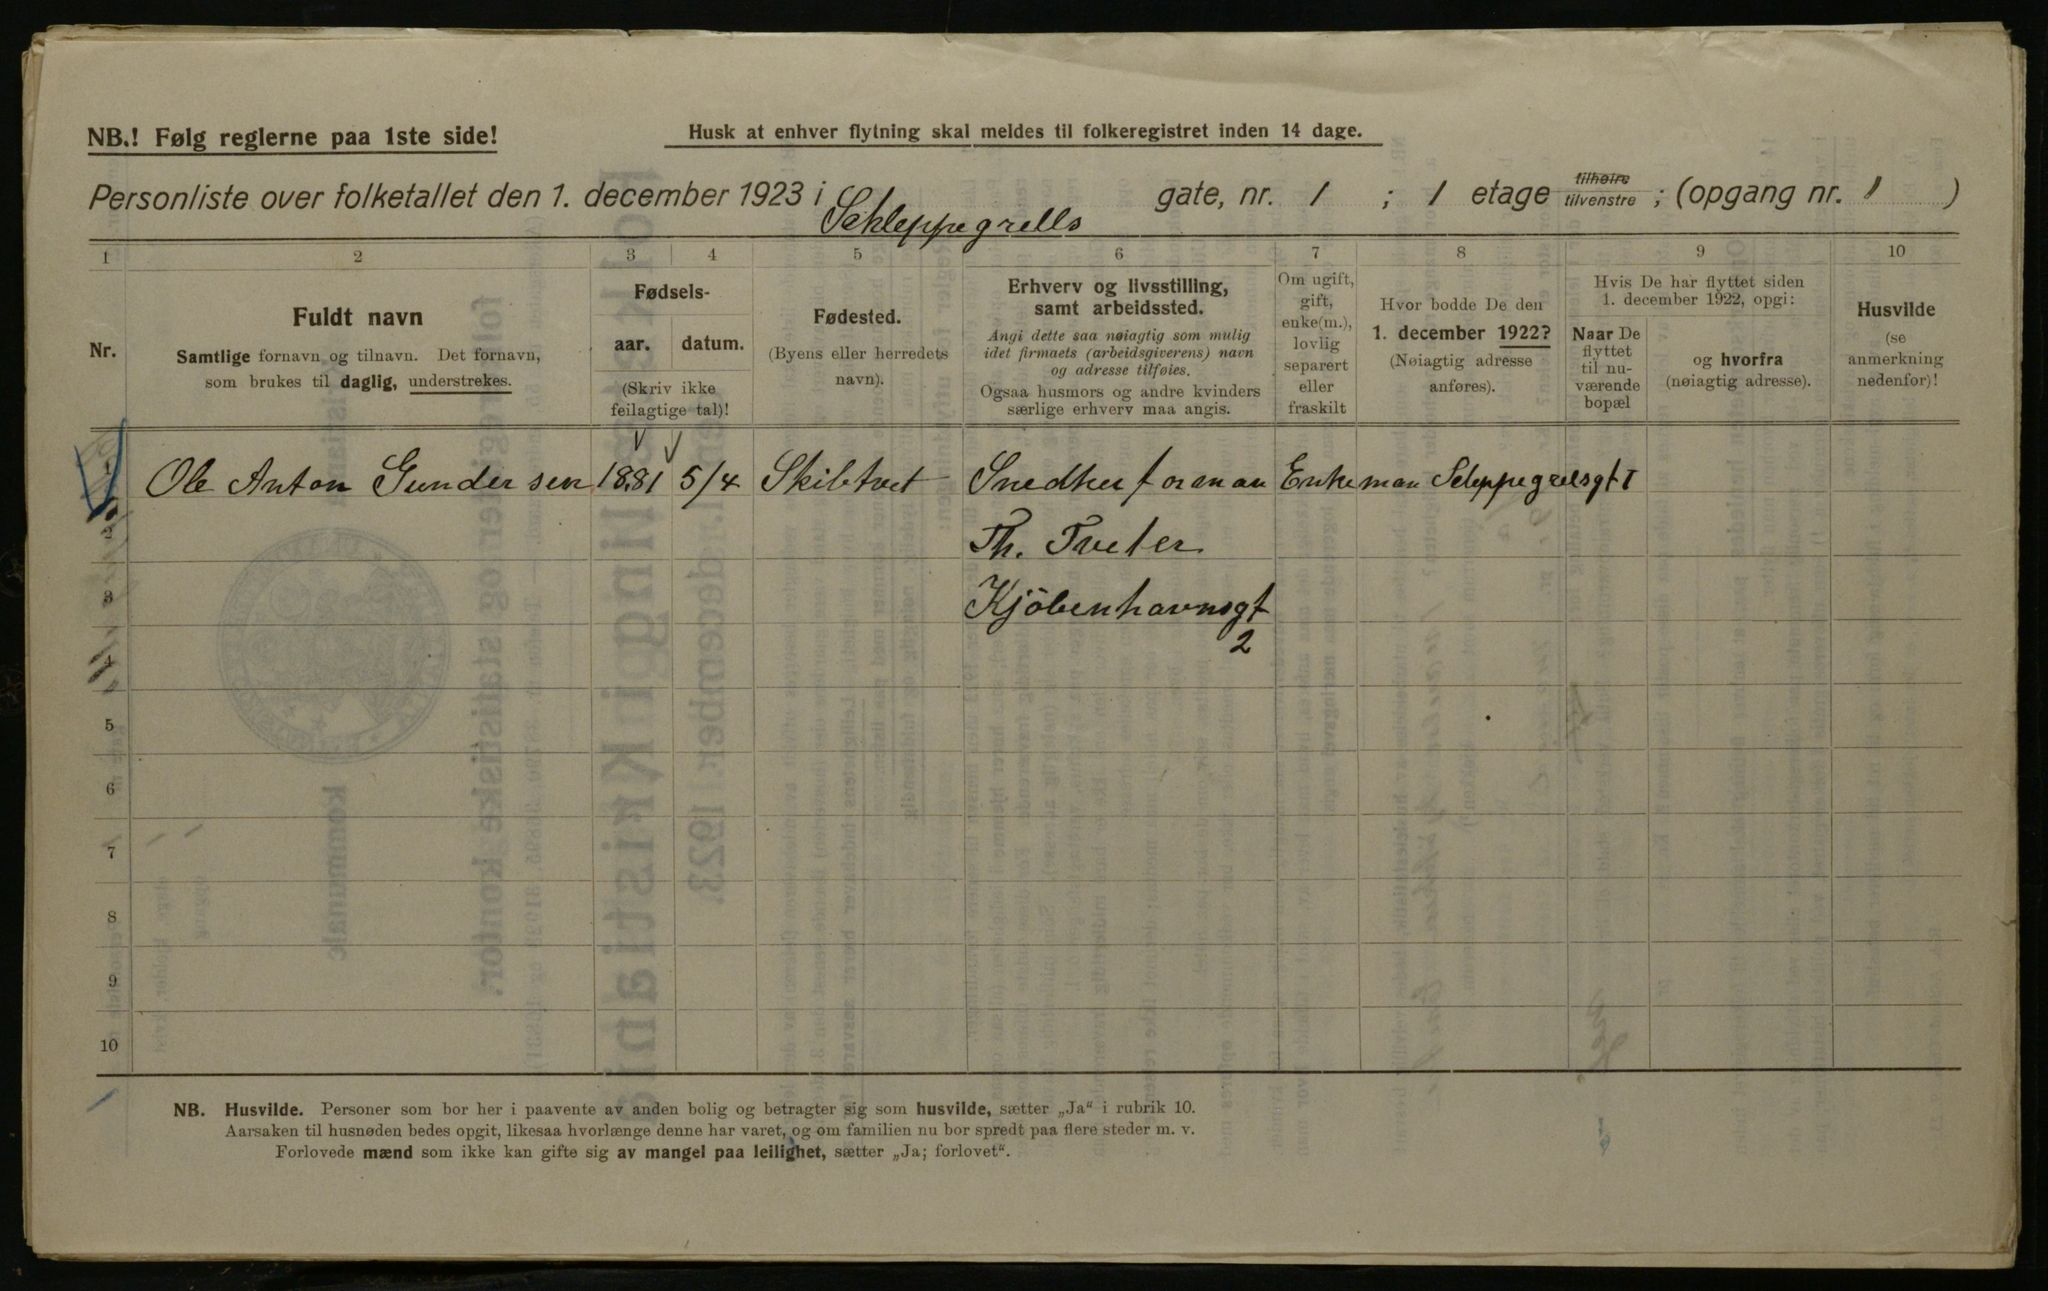 NB.! Følg reglerne paa 1ste side!
Husk at enhver flytning skal meldes til folkeregistret inden 14 dage.
Personliste over folketallet den 1. december 1923 i Schleppegrells gate, nr. 1 ; 1 etage tilhøire tilvenstre ; (opgang nr. 1 )
1 2 3 4 5 6 7 8 9 10
Nr.
Fuldt navn
Samtlige fornavn og tilnavn. Det fornavn,
som brukes til daglig, understrekes.
Fødsels-
aar. datum.
(Skriv ikke
feilagtige tal)!
Fødested.
(Byens eller herredets
navn).
Erhverv og livsstilling,
samt arbeidssted.
Angi dette saa nøiagtig som mulig
idet firmaets (arbeidsgiverens) navn
og adresse tilføies.
Ogsaa husmors og andre kvinders
særlige erhverv maa angis.
Om ugift,
gift,
enke(m.),
lovlig
separert
eller
fraskilt
Hvor bodde De den
1. december 1922?
(Nøiagtig adresse
anføres).
Hvis De har flyttet siden
1. december 1922, opgi:
Naar De
flyttet
til nu-
værende
bopæl
og hvorfra
(nøiagtig adresse).
Husvilde
(se
anmerkning
nedenfor)!
1 Ole Anton Gundersen 1881 5/4 Skibtvet Snedkerforman Enkeman Scleppegrelsgt 1
2 Th. Tveter
3 Kjöbenhavnsgt
4 2
5
6
7
8
9
10
NB. Husvilde. Personer som bor her i paavente av anden bolig og betragter sig som husvilde, sætter „Ja“ i rubrik 10.
Aarsaken til husnøden bedes opgit, likesaa hvorlænge denne har varet, og om familien nu bor spredt paa flere steder m. v.
Forlovede mænd som ikke kan gifte sig av mangel paa leilighet, sætter „Ja; forlovet“.